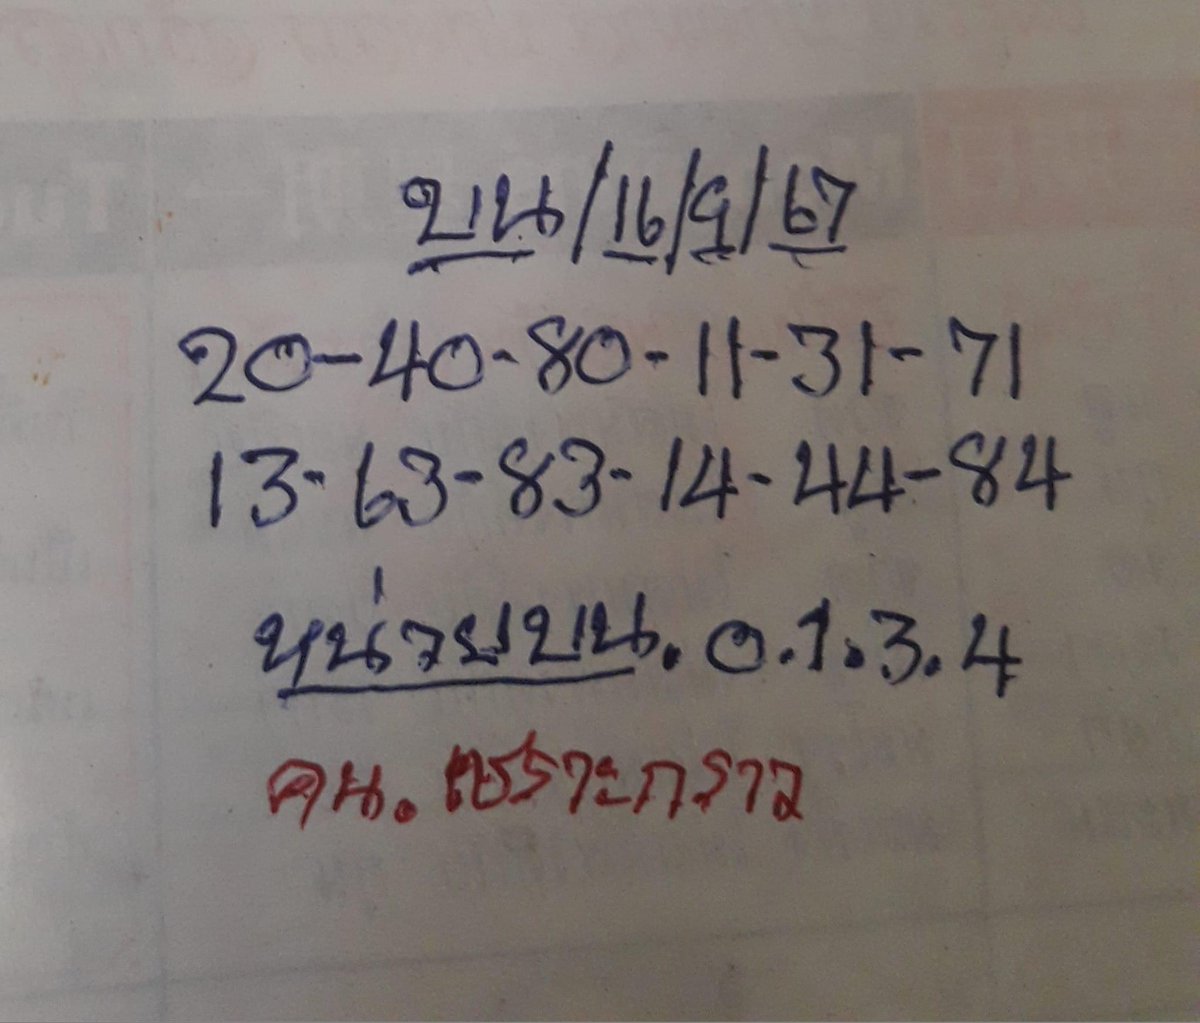 บน/16/9/67
20-40-80-11-31-71
13-63-83-14-44-84
หน่วยบน.0.1.3.4
คน.